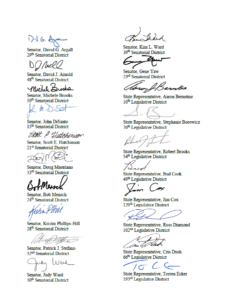 Senator, David G. Argall
29th Senatorial District
Senator, David J. Arnold
48th Senatorial District
Senator, Michele Brooks
50th Senatorial District
Senator, John DiSanto
15th Senatorial District
Senator, Scott E. Hutchinson
21st Senatorial District
Senator, Doug Mastriano
33rd Senatorial District
Senator, Bob Mensch
Senatorial District
Senator, Kristin Phillips-Hill
28th Senatorial District
Senator, Patrick J. Stefano
32nd Senatorial District
Senator, Judy Ward
30th Senatorial District
Senator, Kim L. Ward
39th Senatorial District
Senator, Gene Yaw
Senatorial District
State Representative, Aaron Bernstine
10th Legislative District
State Representative, Stephanie Borowicz
76th Legislative District
State Representative, Robert Brooks
54th Legislative District
State Representative, Bud Cook
49th Legislative District
State Representative, Jim Cox
129th Legislative District
State Representative, Russ Diamond
102nd Legislative District
State Representative, Cris Dush
66th Legislative District
State Representative, Torren Ecker
193rd Legislative District